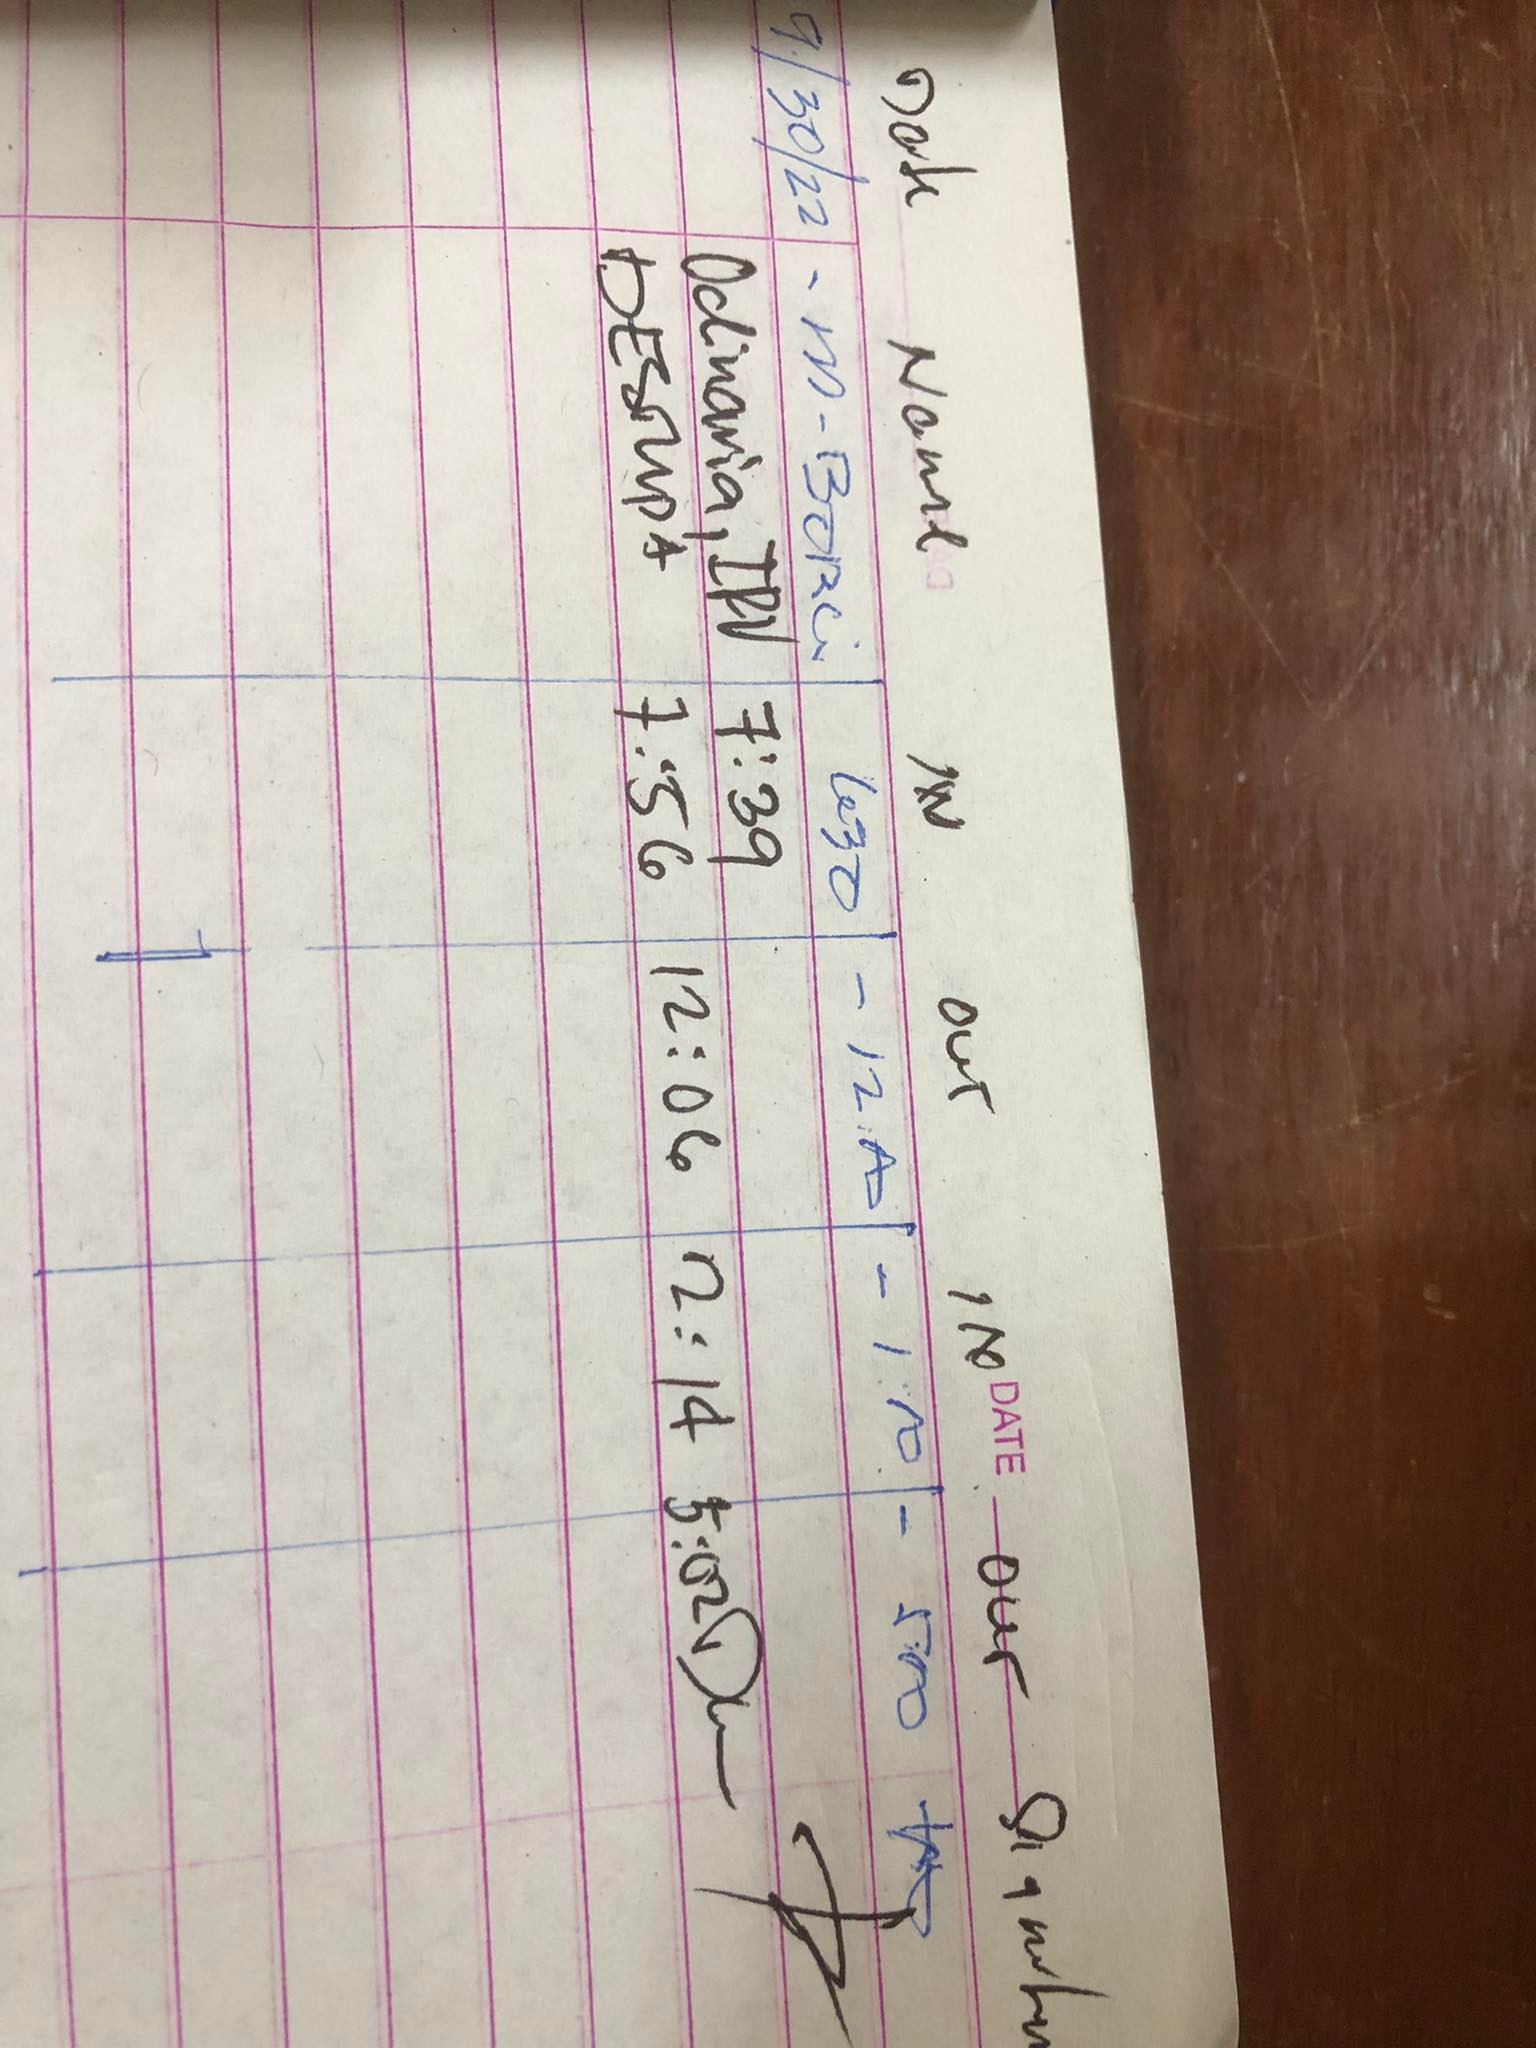 Date Name IN OUT IN DATE OUT Signature
9/30/22 - m-Boraci 630 - 12:00 - 1:00 - 500
Odinaria, IAN 7:39
DESTUPA 7:56 12:06 12:14 5:02